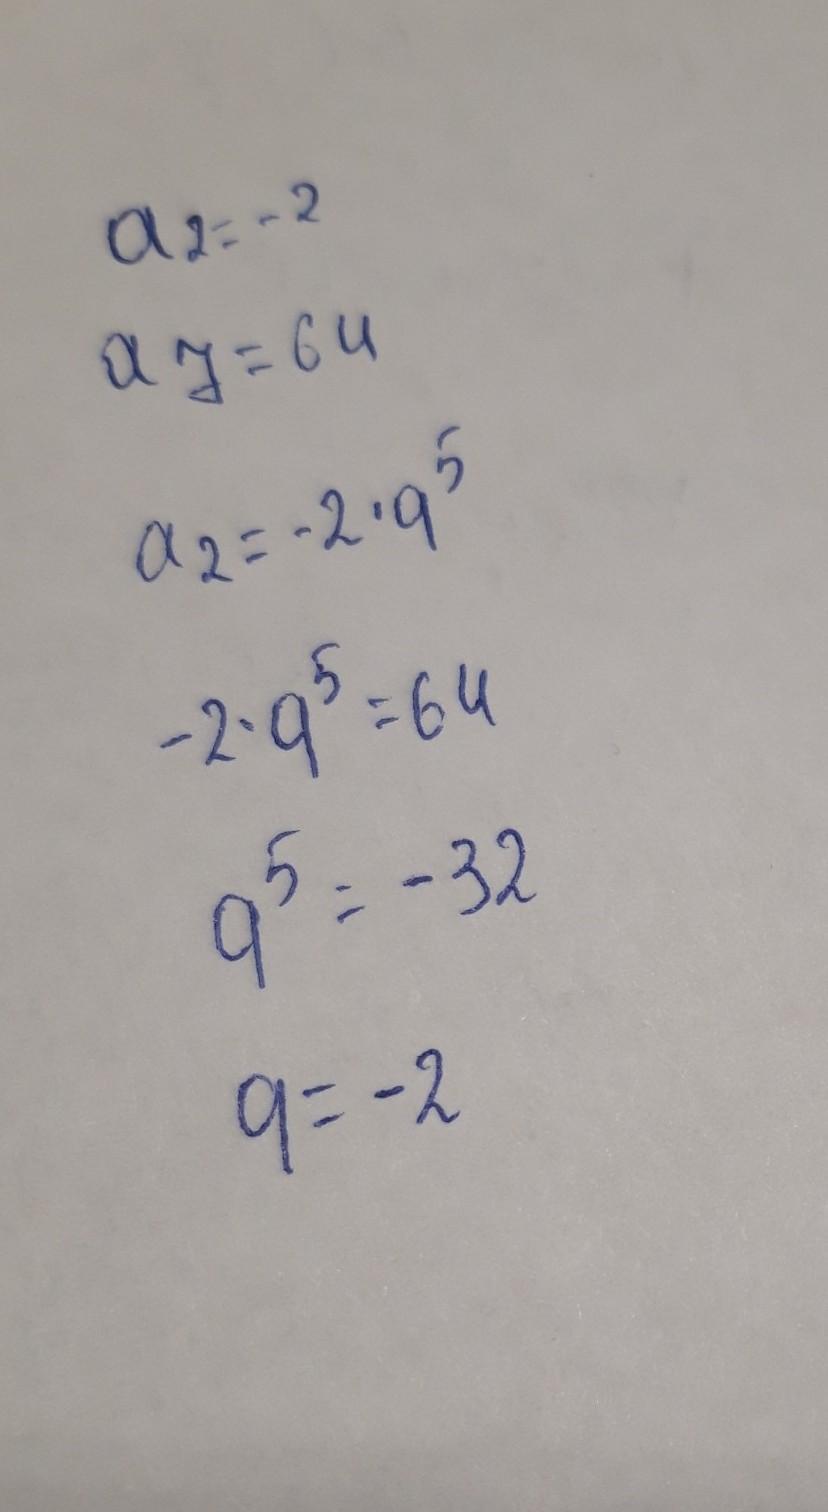 a₂=-2
a₇=64
a₂=-2·q⁵
-2·q⁵=64
q⁵=-32
q=-2